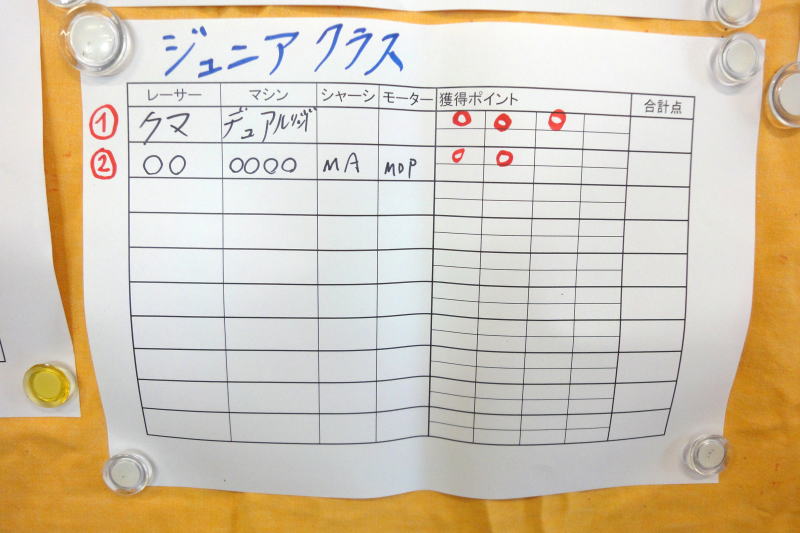 ジュニアクラス
レーサー マシン シャーシ モーター 獲得ポイント 合計点
① クマ デュアルリッジ ○ ○ ○
② ○○ ○○○○ MA MDP ○ ○